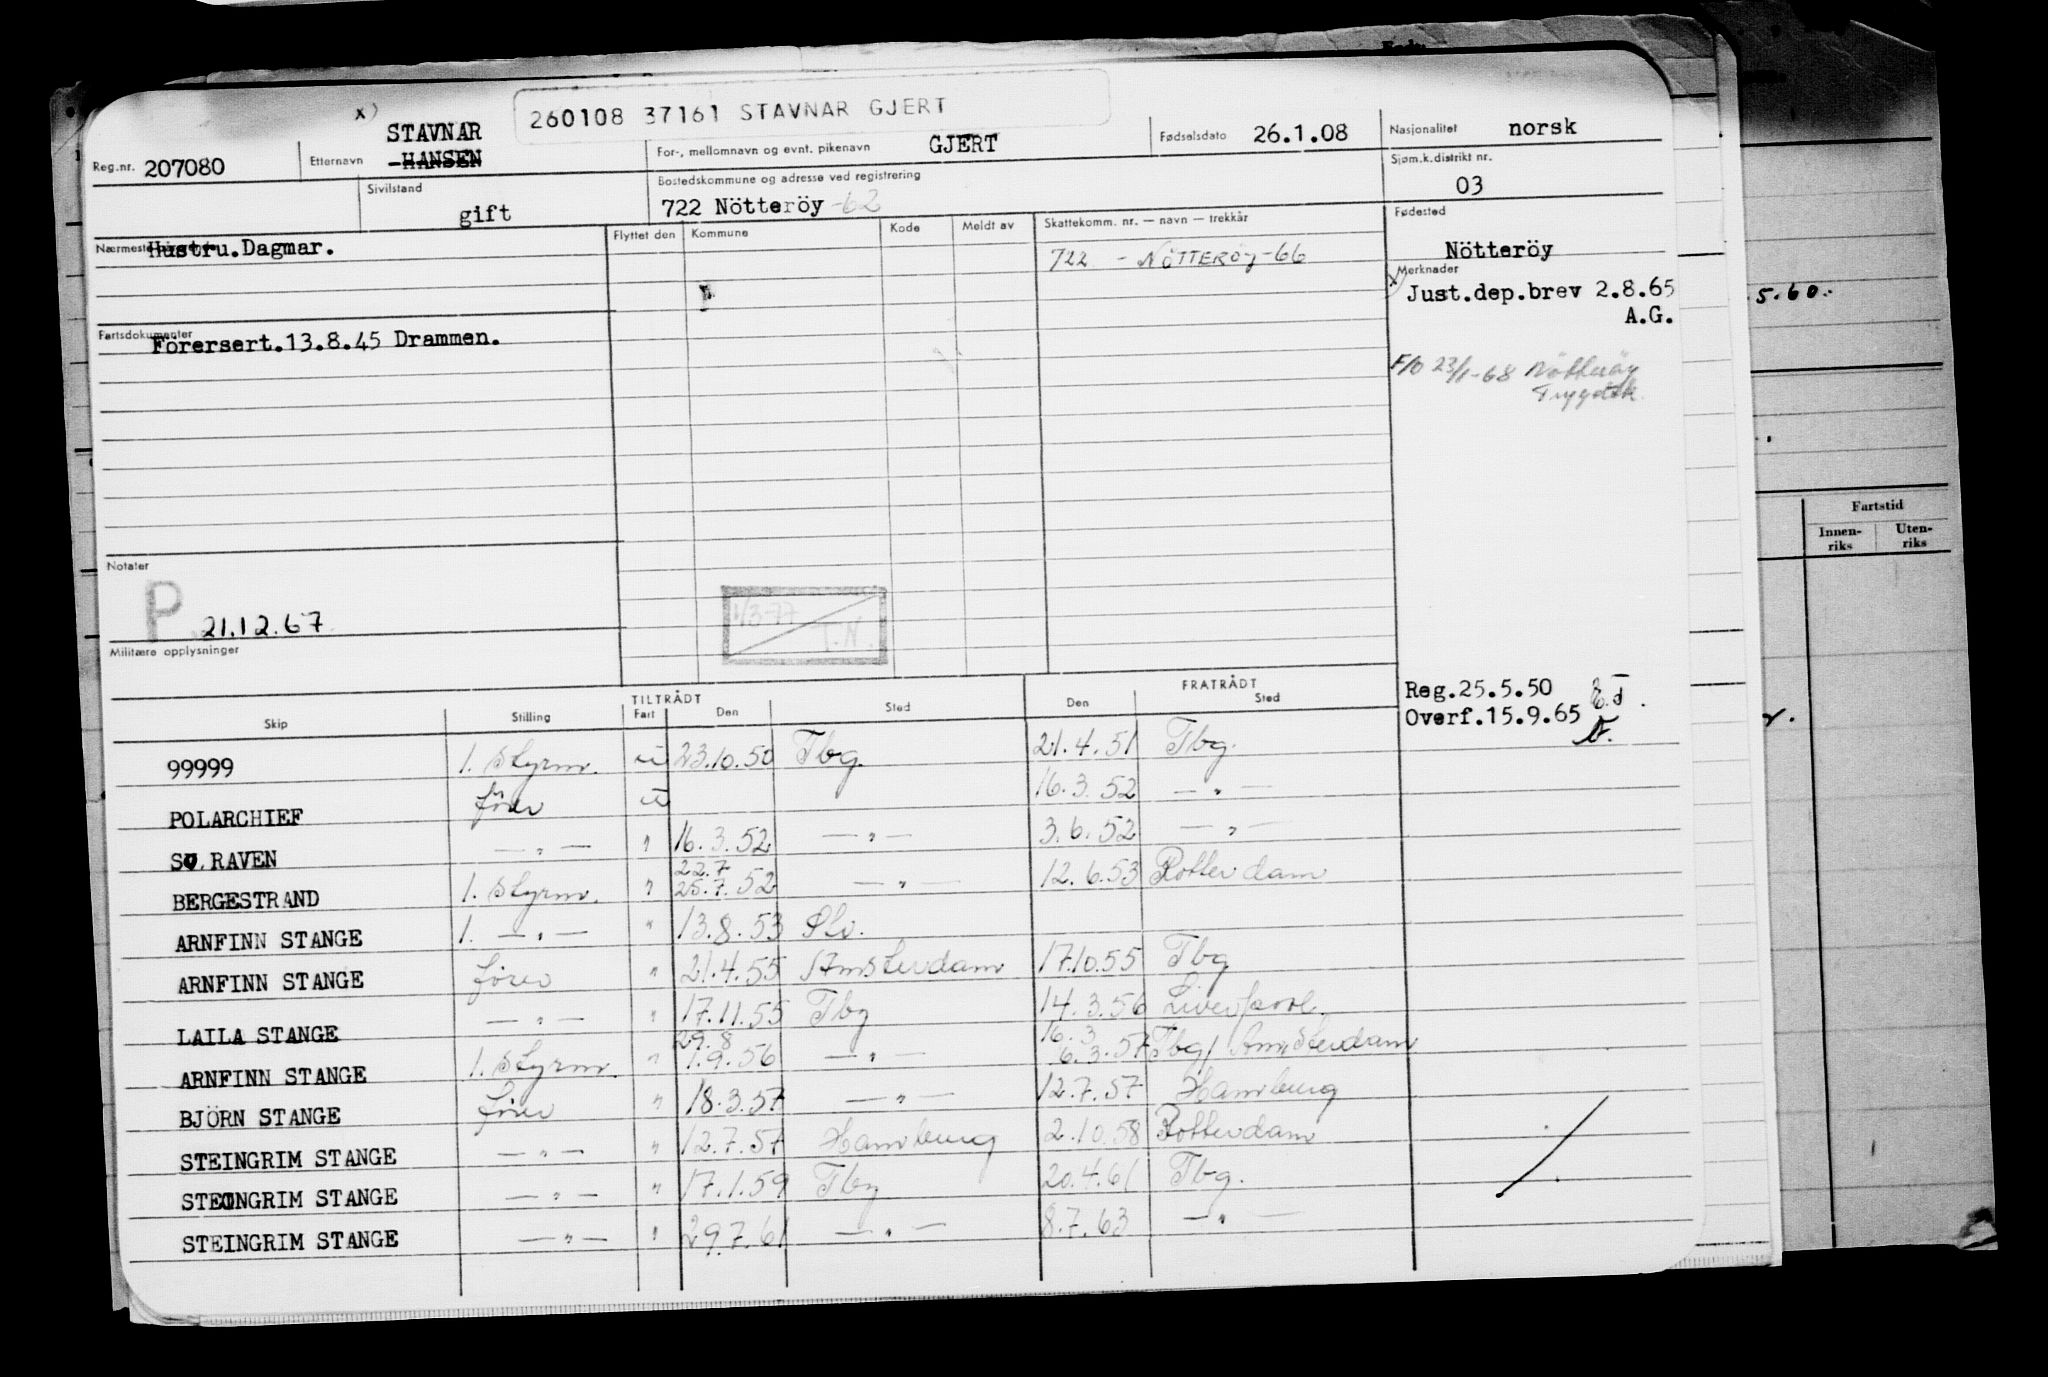 x)
260108 37161 STAVNAR GJERT
Reg.nr. 207080 Etternavn STAVNAR
-HANSEN
For-, mellomnavn og evnt. pikenavn GJERT Fødselsdato 26.1.08 Nasjonalitet norsk
Sivilstand gift Bostedskommune og adresse ved registrering
722 Nötteröy -62
Sjøm.k.distrikt nr.
03
Nærmeste Hustru.Dagmar.
Flyttet den Kommune Kode Meldt av Skattekomm. nr. — navn — trekkår
722 - NÖTTERÖY-66
Fødested
Nötteröy
Merknader
x) Just.dep.brev 2.8.65
A.G.
F/O 23/1-68 Nötteröy
Trygdek.
Fartsdokumenter
Förersert.13.8.45 Drammen.
Notater
P 21.12.67
1/3-77
T.N.
Militære opplysninger
Reg.25.5.50
Overf.15.9.65
TILTRÅDT FRATRÅDT
Skip Stilling Fart Den Sted Den Sted
99999 1. styrm. u 23.10.50 Tbg. 21.4.51 Tbg.
POLARCHIEF förer u 16.3.52 — " —
RAVEN — " — " 16.3.52 — " — 3.6.52 — " —
22.7
BERGESTRAND 1. styrm. " 25.7.52 — " — 12.6.53 Rotterdam
ARNFINN STANGE 1. — " — " 13.8.53
ARNFINN STANGE förer " 21.4.55 Amsterdam 17.10.55 Tbg
LAILA STANGE — " — " 17.11.55 Tbg 14.3.56 Liverpool.
29.8 16.3
ARNFINN STANGE 1. styrm. " 1.9.56 — " — 6.3.57 Tbg/ Amsterdam
BJÖRN STANGE förer " 18.3.57 — " — 12.7.57 Hamburg
STEINGRIM STANGE — " — " 12.7.57 Hamburg 2.10.58 Rotterdam
STEINGRIM STANGE — " — " 17.1.59 Tbg 20.4.61 Tbg.
STEINGRIM STANGE — " — " 29.7.61 — " — 8.7.63 — " —
5.60.
Fartstid
Innen-
riks
Uten-
riks